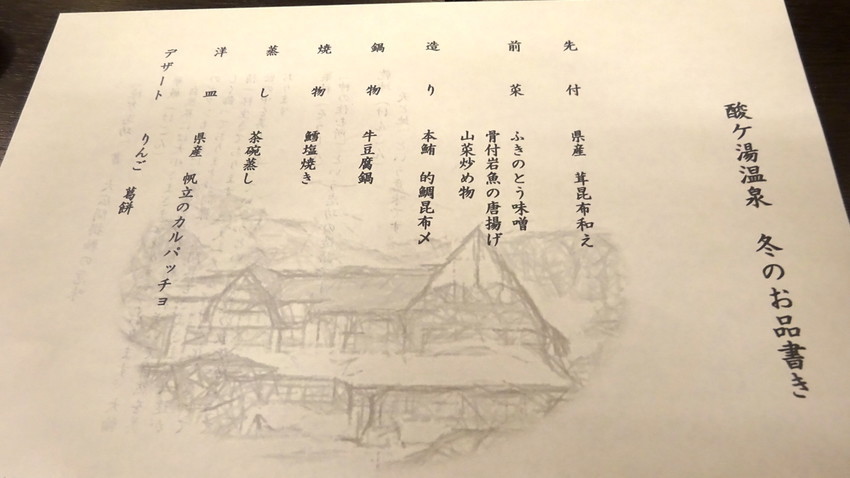 酸ケ湯温泉 冬のお品書き
先付 県産 茸昆布和え
前菜 ふきのとう味噌
骨付岩魚の唐揚げ
山菜炒め物
造り 本鮪 的鯛昆布〆
鍋物 牛豆腐鍋
焼物 鱈塩焼き
蒸し 茶碗蒸し
洋皿 県産 帆立のカルパッチョ
デザート りんご 葛餅